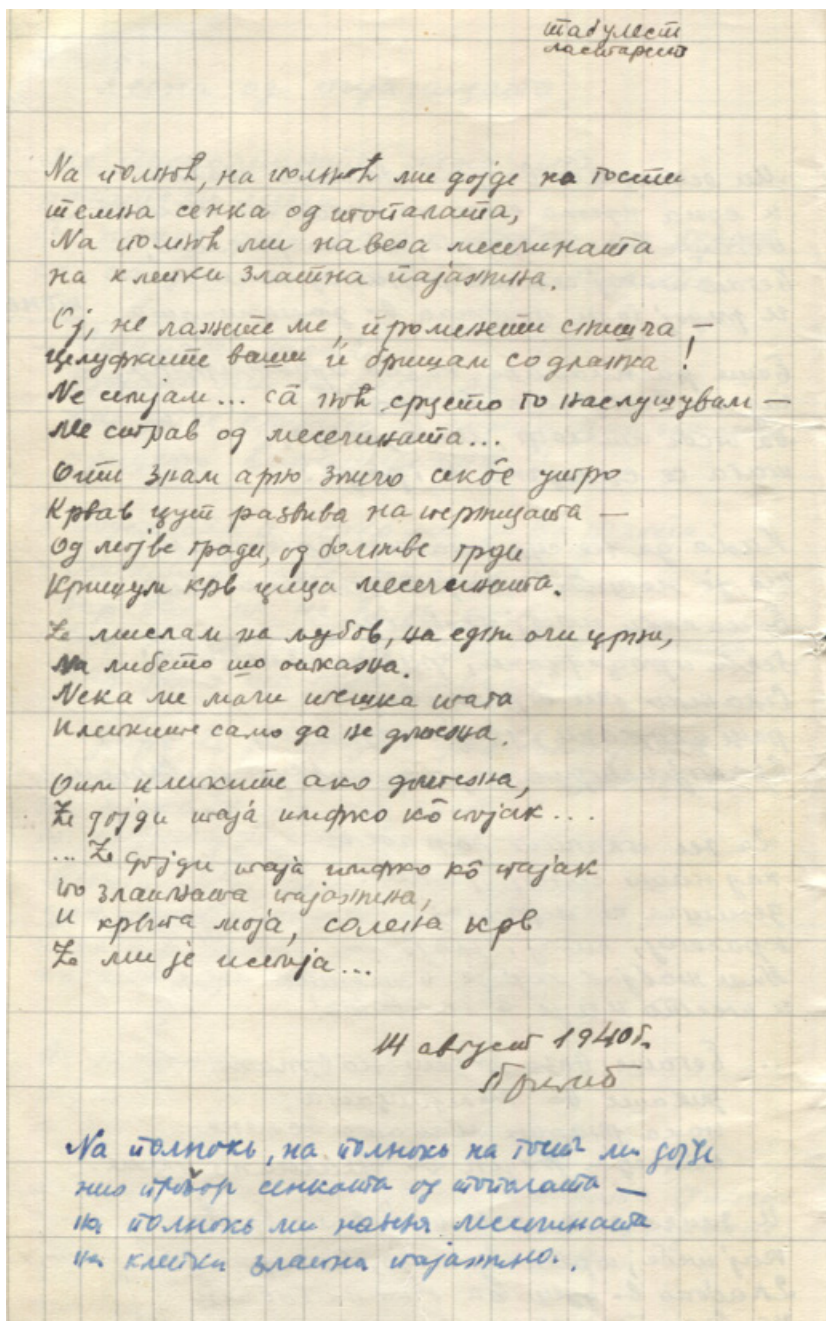 На полноћ, на полноћ ми дојде на гости
темна сенка од тополата,
На полноћ ми навеза месечината
на клепки златна пајажина.
Еј, не лажете ме, променети сништа —
целуфките ваши и бришам со дланка!
Не спијам... сâ ноћ срцето го наслушувам —
ме страв од месечината...
Оти знам арно зошчо секôе утро
Крвав цут развива на перницата —
Од мојве гради, од болниве грди
Кришум крв цица месечината.
Ће мислам на љубов, на едни очи црни,
на либето що отказна.
Нека ме мачи тешка тага
Клепките само да не дремна.
Оти клепките ако дремна,
Ће дојди таја тифко кô пајак...
...Ће дојди таја тифко кô пајак
по златната пајажина,
и крвта моја, солена крв
Ће ми је испија...
14 август 1940 г.
На полнокь, на полнокь на гости ми дојде
низ прозор сенката од тополата —
на полнокь ми месечината
на клепки златна пајажина.